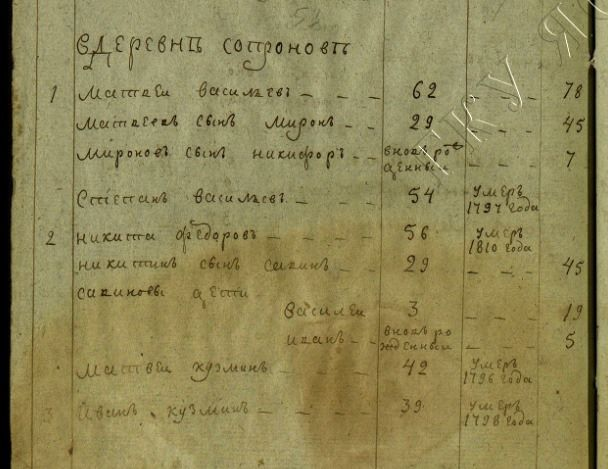 въ Деревнѣ сопроновѣ
1 Матвеи васильевъ - - - 62 - - - 78
Матвеевъ сынъ миронъ - - 29 - - - 45
Мироновъ сынъ никифоръ - - вновь ро - - - 7
жденный
Степанъ васильевъ - - - 54 умеръ
1797 года
2 никита федоровъ - - - - 56 умеръ
1810 года
никитинъ сынъ савинъ - - 29 - - - 45
савиновы дети
василеи 3 - - - 19
иванъ - вновь ро - - - 5
жденныи
Матвеи кузминъ - - - 42 умеръ
1796 года
3 Иванъ кузминъ - - - - 39 умеръ
1798 года
ГКУ ЯО